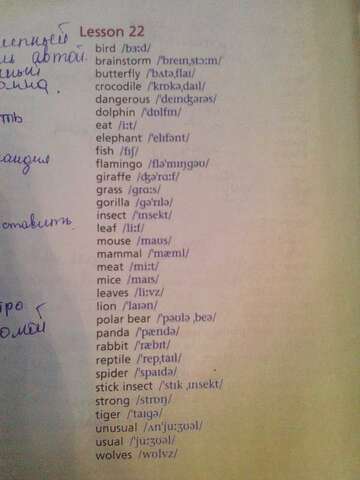 Lesson 22
bird /bɜːd/
brainstorm /'breɪn,stɔːm/
butterfly /'bʌtə,flaɪ/
crocodile /'krɒkə,daɪl/
dangerous /'deɪnʤərəs/
dolphin /'dɒlfɪn/
eat /iːt/
elephant /'elɪfənt/
fish /fɪʃ/
flamingo /flə'mɪŋgəʊ/
giraffe /ʤə'rɑːf/
grass /grɑːs/
gorilla /gə'rɪlə/
insect /'ɪnsekt/
leaf /liːf/
ставить
mouse /maʊs/
mammal /'mæml/
meat /miːt/
mice /maɪs/
leaves /liːvz/
lion /'laɪən/
polar bear /'pəʊlə ,beə/
panda /'pændə/
rabbit /'ræbɪt/
reptile /'rep,taɪl/
spider /'spaɪdə/
stick insect /'stɪk ,ɪnsekt/
strong /strɒŋ/
tiger /'taɪgə/
unusual /ʌn'juːʒʊəl/
usual /'juːʒʊəl/
wolves /wʊlvz/